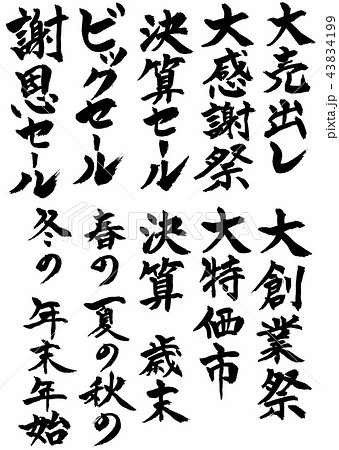 大売出し
大感謝祭
決算セール
ビックセール
謝恩セール
大創業祭
大特価市
決算 歳末
春の 夏の 秋の
冬の 年末年始
PIXTA
pixta.jp - 43834199